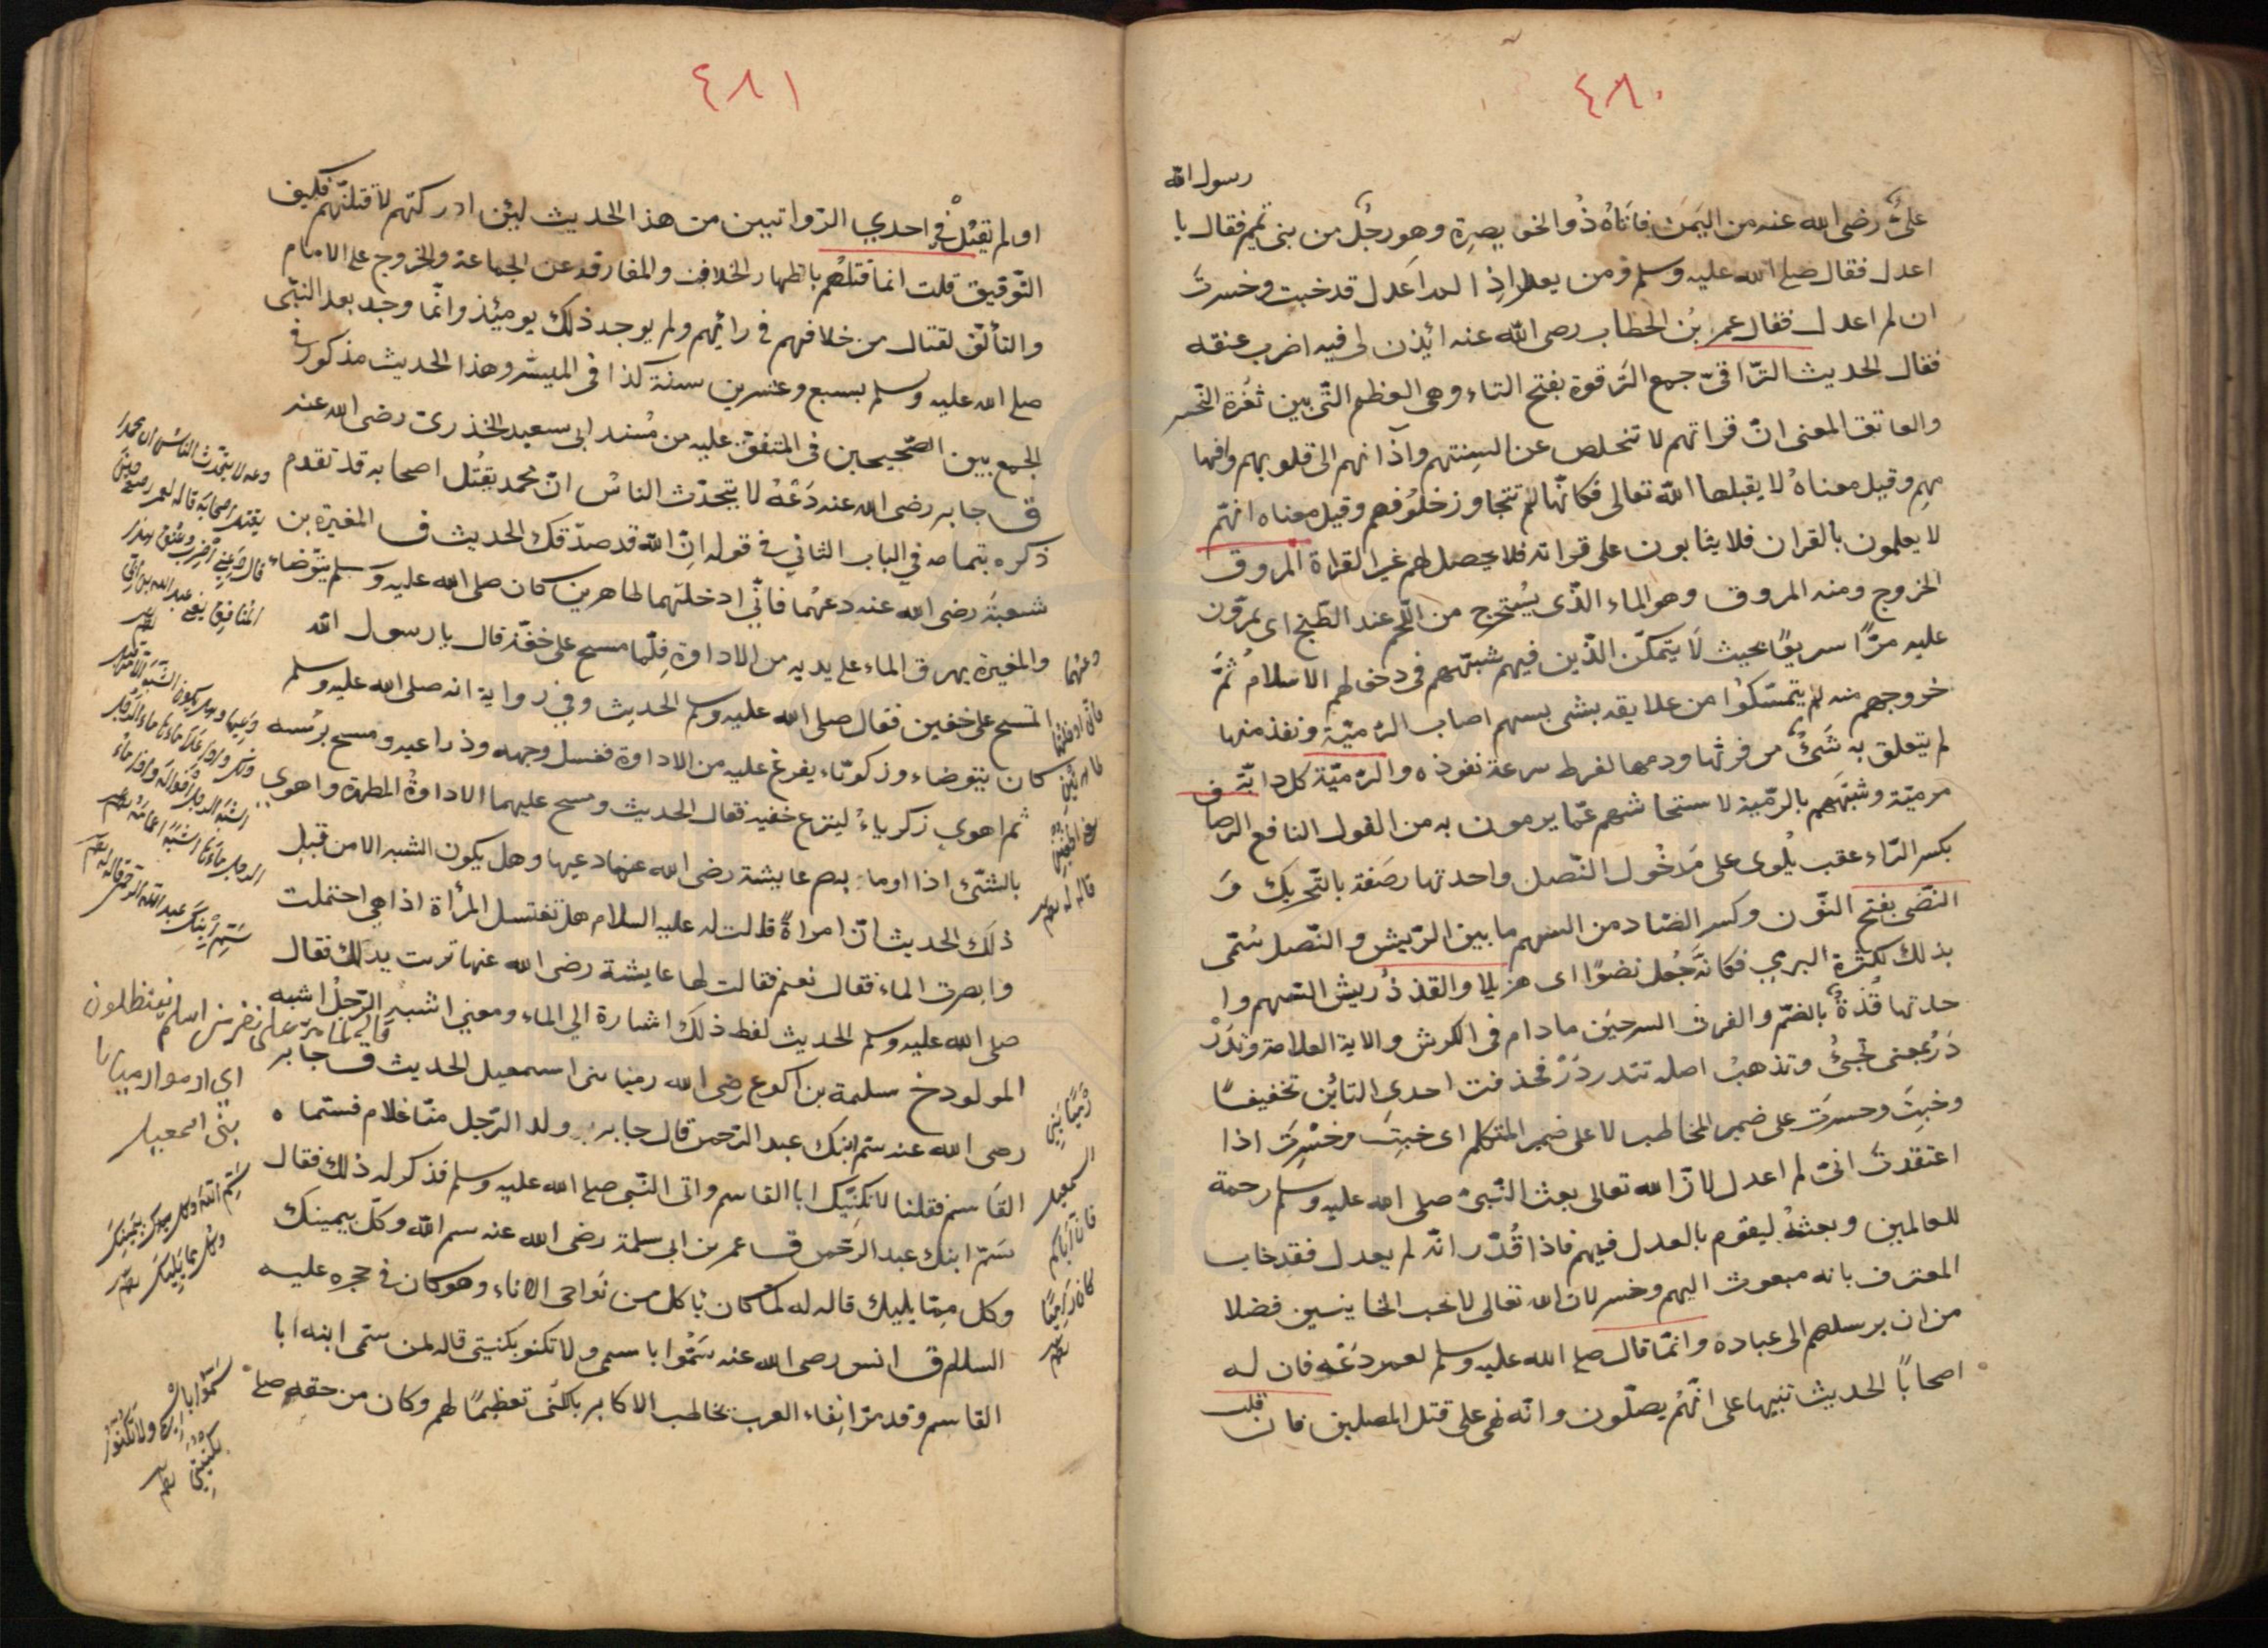 ٤٨٠
رسول الله
علىٌّ رضى الله عنه من اليمَن فاتاهُ ذُو الخويصرة وهو رجُل من بنى تميم فقال يا
اعدل فقال صلى الله عليه وسلم ومن يعدل اذا لم اعدل قد خبت وخسرت
ان لم اعدل فقال عمر بْن الخطاب رضى الله عنه ائذن لى فيه اضرب عنقه
فقال الحديث التّراقىّ جمع التَرقوة بفتح التاء وهى العظم الّتى بين ثُغرَة النّحر
والعاتق المعنى انّ قراتهم لا تتخلص عن السنتهم واذانهم الى قلوبهم وافها
مهم وقيل معناهُ لا يقبلها الله تعالى فكانّها لم تتجاوز خلُوفهم وقيل معناه انهّم
لا يعلمون بالقران فلا يثابون على قراته فلا يحصل لهم غير القراة المروق
الخروج ومنه المروق وهو الماء الذّى يسْتخرج من اللّحم عند الطّبخ اى يمرّون
عليه مرًّا سريعًا بحيث لا يتمكّن الذّين فيهم شبهتهم فى دخولهم الاسلام ثمّ
خروجهم منه لم يتمسّكوُا من علايقه بشى بسهم اصاب الرّميّة ونفذ منها
لم يتعلق به شَىٌ من فرثها ودمها لفرط سرعة نفوذه والرّميّة كل دابّة
مرميّة وشبّههم بالرّمية لاستحاشهم عمّا يرمون به من القول النافع الرّصا
بكسر الرّاء عقب يلْوى على مَدخُول النّصل واحدتها رصَفة بالتّحريك و
النضى بفتح النّون وكسر الضاد من السهم ما بين الرّيش والنّصل سُمّى
بذلك لكثرة البري فكانّه جُعل نضوًا اى هزيلا والقذذُ ريش السّهم وا
حدتها قُذةٌ بالضّم والفرث السرجين ما دام فى الكرش والاية العلامة وتدَرْ
دَرُ بمعنى تجىُ وتذهبُ اصله تتدردَرْ فحذفت احدى التائين تخفيفًا
وخبتَ وخسرتَ على ضمير المخاطب لا على ضمير المتكلم اى خبتَ وخسِرتَ اذا
اعتقدتَ انىّ لم اعدل لانّ الله تعالى بعث النّبىّ صلى الله عليه وسلم رحمة
للعالمين وبعثهُ ليقوم بالعدل فيهم فاذا قُدّر انّه لم يعدل فقد خاب
المعترف بانه مبعوث اليهم وخسر لان الله تعالى لا يحب الخاينين فضلا
من ان يرسلهم الى عباده وانمّا قال صلى الله عليه وسلم لعمر دعْه فان له
اصحابًا الحديث تنبيها على انّهم يصلّون وانّه نهى على قتل المصلين فان قلت
٤٨١
اولم يقُلْ فى احدي الرّواتيين من هذا الحديث ليئن ادركتهم لاقتلنّهم فكيف
التّوفيق قلت انما قتلهُم باظهار الخلاف والمفارقه عن الجماعة والخروج على الامام
والتألّق لقتال من خلافهم فى رأئهم ولم يوجد ذلك يومئذ وانّما وجد بعد النبّى
صلى الله عليه وسلم بسبع وعشرين سنة كذا فى الميسّر وهذا الحديث مذكور فى
الجمع بين الصّحيحين فى المتفق عليه من مُسند ابى سعيد الخذرى رضى الله عنه
ق جابر رضى الله عنه دَعْهُ لا يتحدّث الناسُ انّ محمد يقتُل اصحابه قد تقدم
ذكره بتمامه في الباب الثاني فى قوله انّ الله قد صدّقك الحديث ق المغيرة بن
شعبةَ رضى الله عنه دعهُما فانّي ادخلتهما طاهرين كان صلى الله عليه وسلم يتوّضاء
والمغيرة يهرق الماء على يديه من الاداوة فلّما مسح على خفّه قال يا رسول الله
المسح على خفين فقال صلى الله عليه وسلم الحديث وفي رواية انه صلى الله عليه وسلم
كان يتوضاء وزكريّاء يفرغ عليه من الاداوة فغسل وجهه وذراعيه ومسح برئسه
ثم اهوي زكرياءُ لينزع خفيه فقال الحديث ومسح عليهما الاداوةُ المطهرة واهوى
بالشئ اذا اوما به م عايشة رضى الله عنها دعيها وهل يكون الشبه الا من قبل
ذلك الحديث انّ امراةً قالت له عليه السلام هل تغتسل المرأة اذا هى احتملت
وابصرت الماء فقال نعم فقالت لها عايشة رضى الله عنها تربت يدلك فقال
صلى الله عليه وسلم الحديث لفظ ذلك اشارة الي الماء ومعنى اشبه الرّجلُ اشبه
المولود خ سلمة بن اكوع رضى الله رميا بنى اسمعيل الحديث ق جابر
رضى الله عنه سم ابنك عبد الرّحمن قال جابر ولد الرّجل منّا غلام فسمّاه
القاسم فقلنا لا نكنّيك ابا القاسم واتى النّبى صلى الله عليه وسلم فذكر له ذلك فقال
سَمّ ابنك عبد الرّحمن ق عمر بن ابى سلمة رضى الله عنه سم الله وكلّ بيمينك
وكل مِمّا يليك قاله له لمّا كان ياكل من نَواحى الاناء وهو كان فى حجره عليه
السلام ق انس رضى الله عنه سَمّوا باسمى ولا تكنو بكنيتى قاله لمن سمّى ابنه ابا
القاسم وقد مرّ انفاء العرب تخاطب الاكابر بالكنى تعظيمًا لهم وكان من حقه صلى
دعه لا يتحدث الناس ان محمدا
يقتل اصحابه قاله لعمر
قال دعني اضرب عنق هذا
المنافق يعنى عبد الله بن ابى
دعهما
فانى ادخلتهما
طاهرتين
يعنى الخفين
قاله له
سم ابنك عبد الرحمن قاله له
قاله لما مرّ على نفر من اسلم ينتظلون
اي ارموا رميا يا
بنى اسمعيل
رميًا بنى
اسمعيل
فان اباكم
كان راميًا
سم الله وكل بيمينك
وكل مما يليك
سموا باسمى ولا تكنوا
بكنيتى